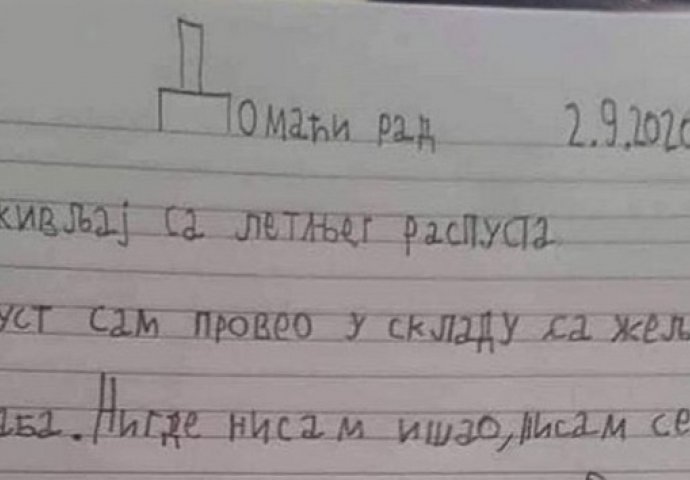 Домаћи рад 2.9.2020
живљај са летњег распуста
уст сам провео у складу са жељ
Нигде нисам ишао, нисам се